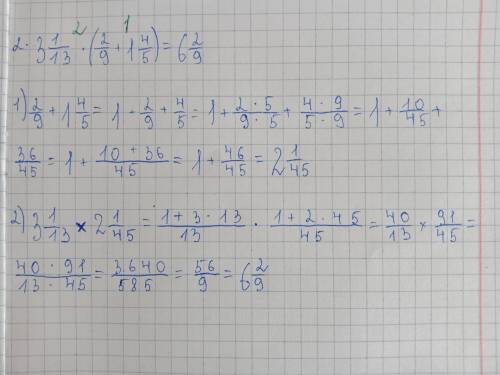 2 1
2. 3 1/13 · (2/9 + 1 4/5) = 6 2/9
1) 2/9 + 1 4/5 = 1 - 2/9 + 4/5 = 1 + 2 · 5/9 · 5 + 4 · 9/5 · 9 = 1 + 10/45 +
36/45 = 1 + 10 + 36/45 = 1 + 46/45 = 2 1/45
2) 3 1/13 × 2 1/45 = 1 + 3 · 13/13 · 1 + 2 · 45/45 = 40/13 × 91/45 =
40 · 91/13 · 45 = 3640/585 = 56/9 = 6 2/9